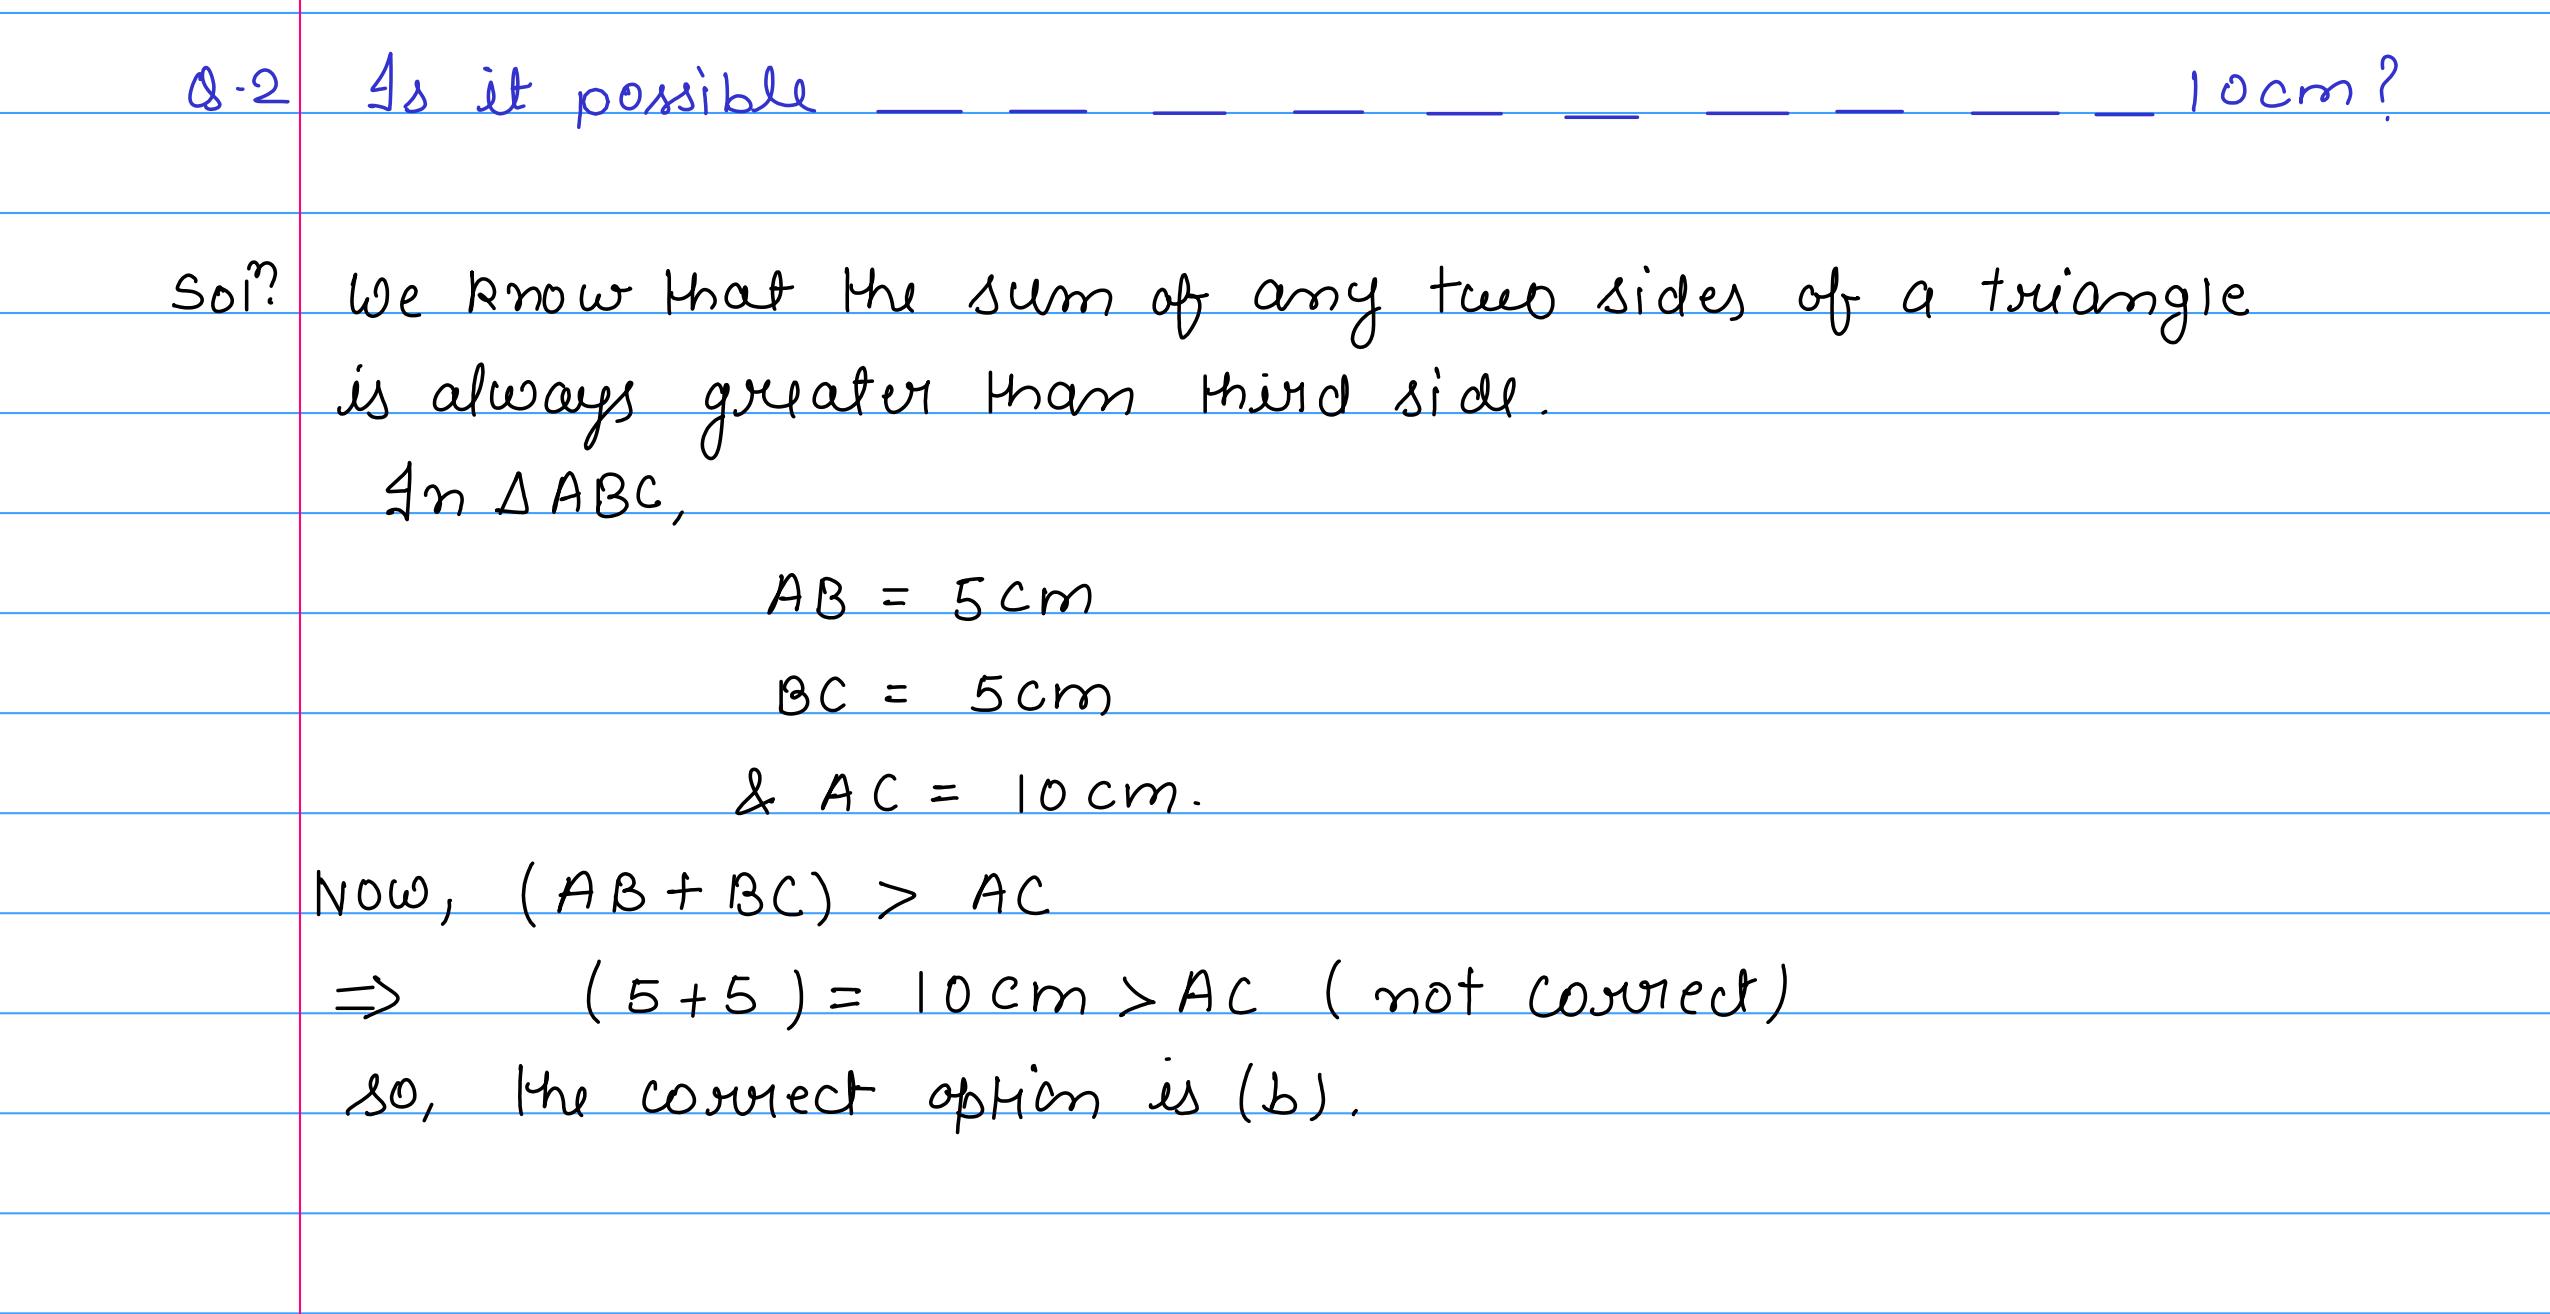 Q-2 Is it possible _ _ _ _ _ _ _ _ _ _ 10cm?
Solⁿ. We know that the sum of any two sides of a triangle
is always greater than third side.
In Δ ABC,
AB = 5cm
BC = 5cm
& AC = 10cm.
Now, (AB + BC) > AC
⇒ (5+5) = 10cm > AC (not correct)
so, the correct option is (b).